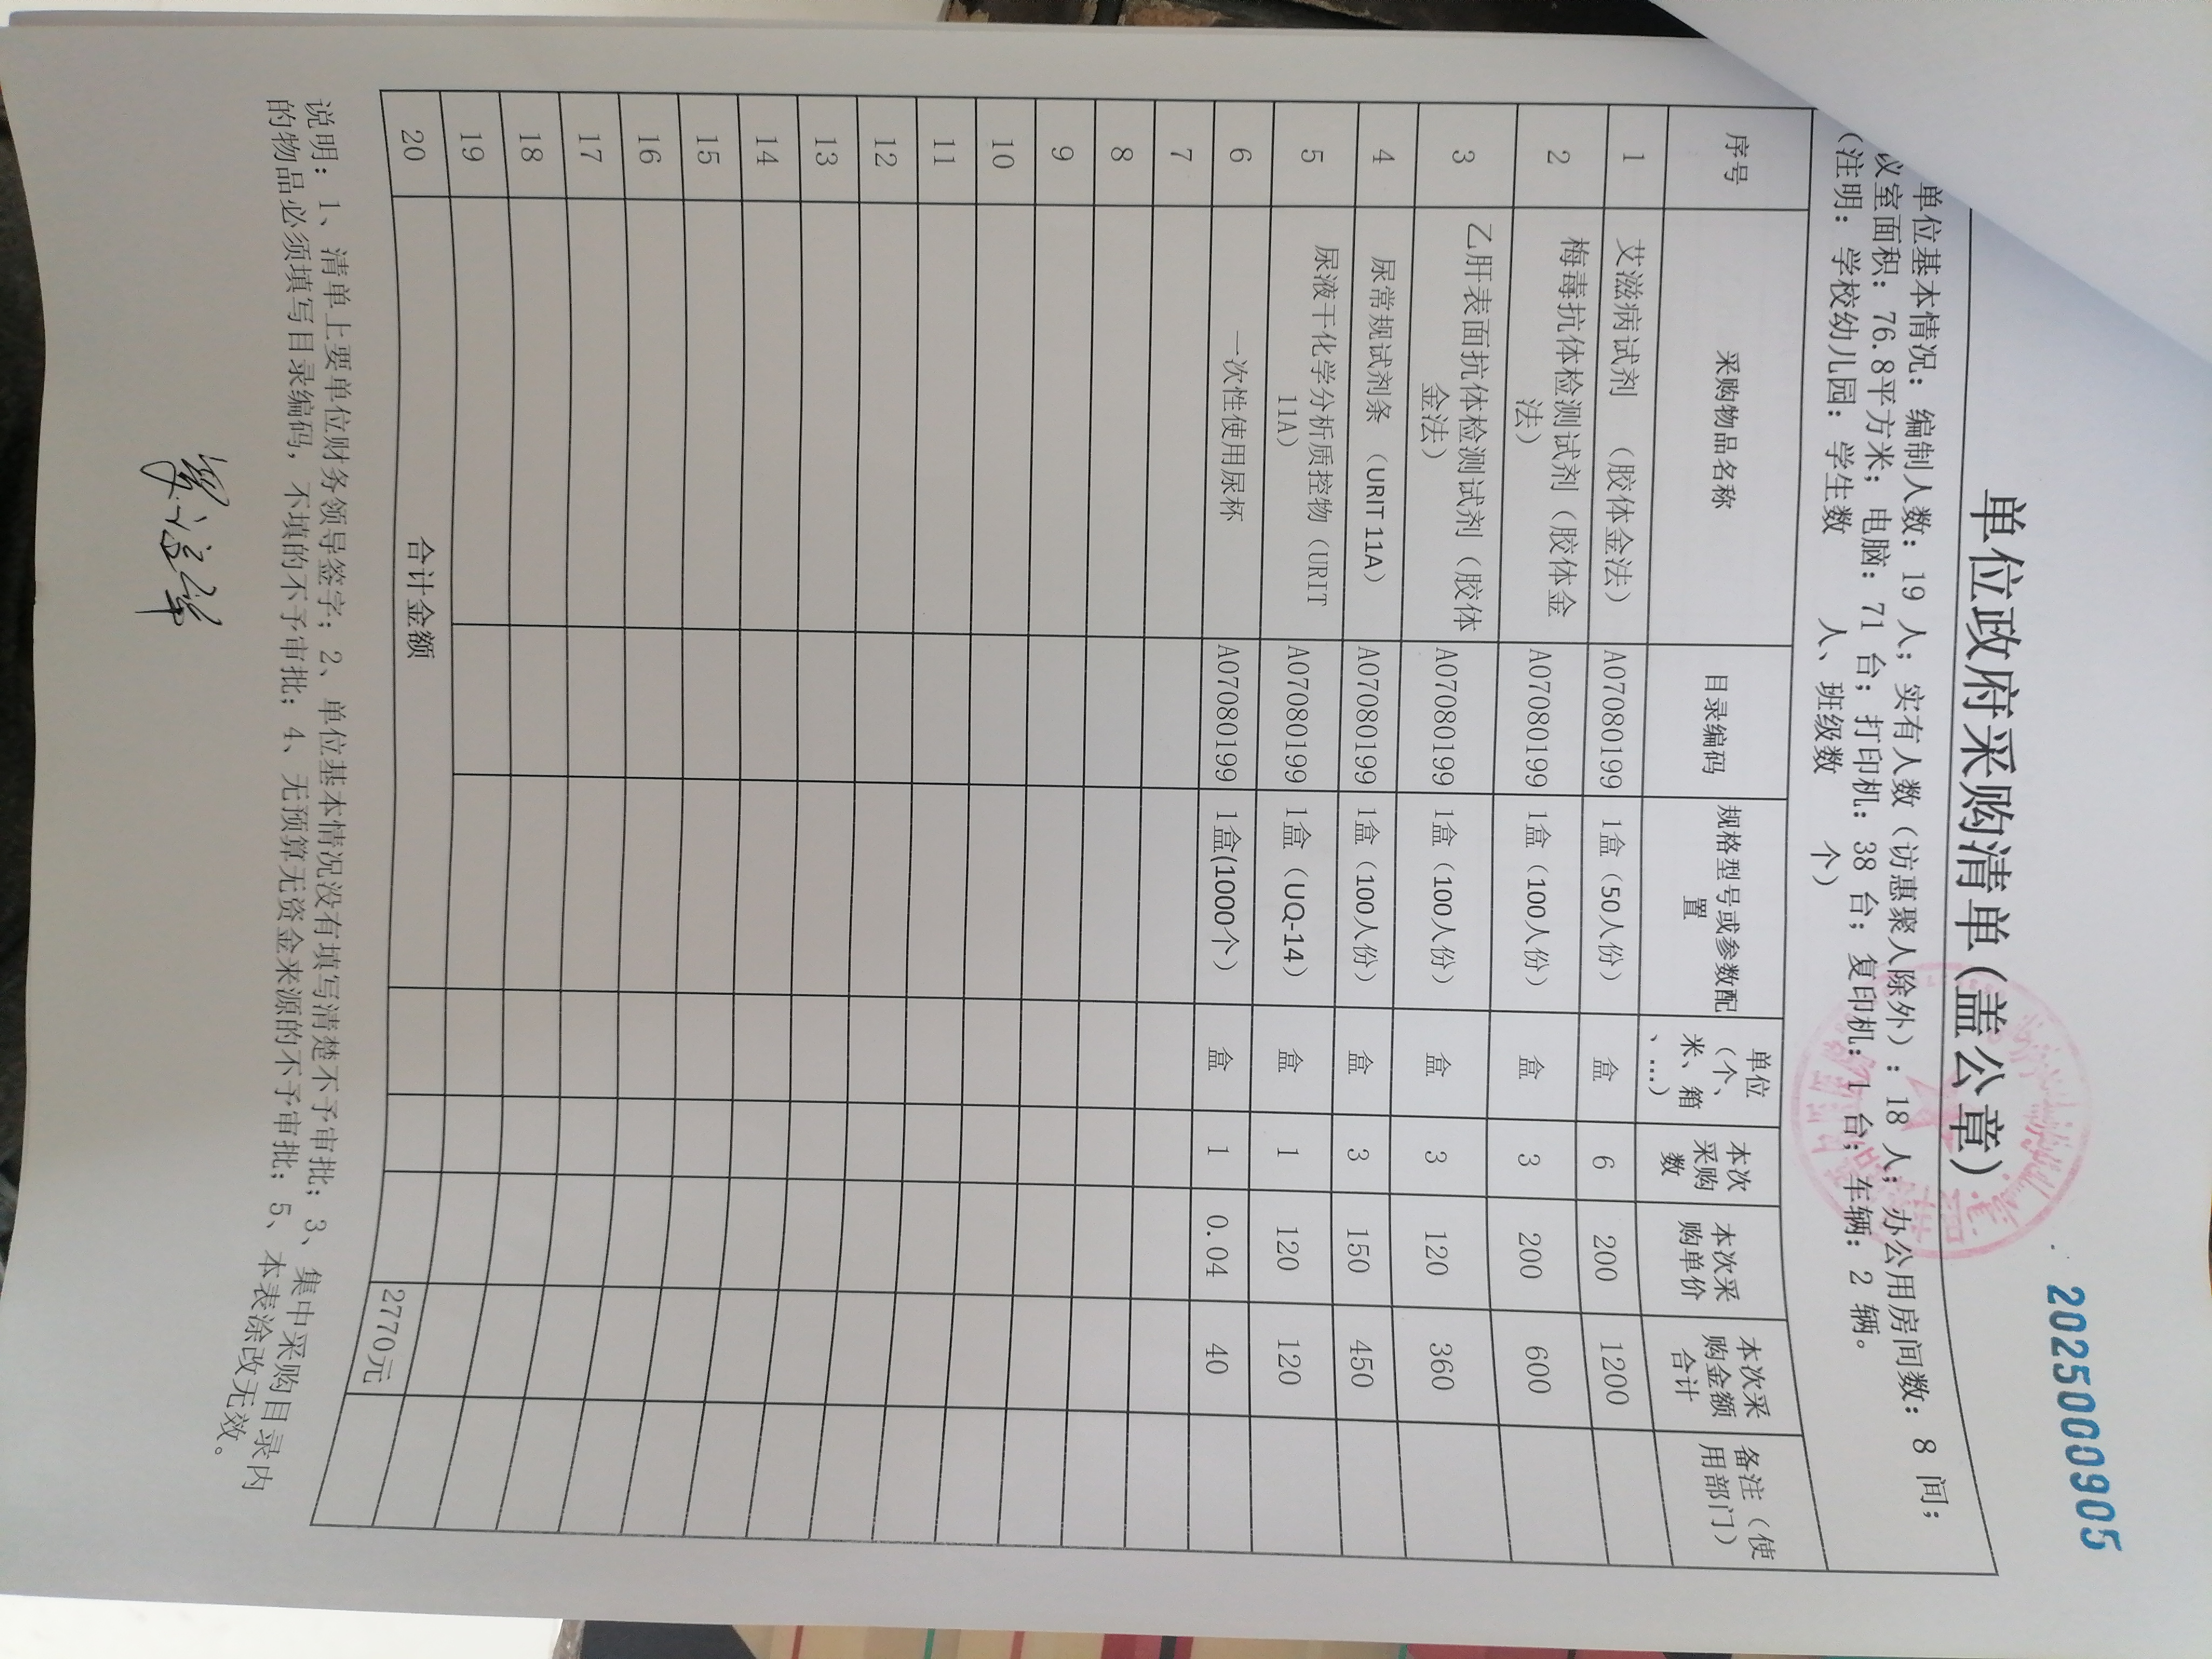 202500905
单位政府采购清单（盖公章）
单位基本情况：编制人数：19 人；实有人数（访惠聚人除外）：18 人；办公用房间数：8 间；
议室面积：76.8平方米；电脑：71 台；打印机：38 台；复印机：1 台；车辆：2 辆。
（注明：学校幼儿园：学生数 人、班级数 个）
序号 采购物品名称 目录编码 规格型号或参数配置 单位（个、米、箱、...） 本次采购数 本次采购单价 本次采购金额合计 备注（使用部门）
1 艾滋病试剂 （胶体金法） A07080199 1盒（50人份） 盒 6 200 1200
2 梅毒抗体检测试剂（胶体金法） A07080199 1盒（100人份） 盒 3 200 600
3 乙肝表面抗体检测试剂（胶体金法） A07080199 1盒（100人份） 盒 3 120 360
4 尿常规试剂条 （URIT 11A） A07080199 1盒（100人份） 盒 3 150 450
5 尿液干化学分析质控物（URIT 11A） A07080199 1盒（UQ-14） 盒 1 120 120
6 一次性使用尿杯 A07080199 1盒(1000个） 盒 1 0.04 40
7
8
9
10
11
12
13
14
15
16
17
18
19
20 合计金额 2770元
说明：1、清单上要单位财务领导签字；2、单位基本情况没有填写清楚不予审批；3、集中采购目录内
的物品必须填写目录编码，不填的不予审批；4、无预算无资金来源的不予审批；5、本表涂改无效。